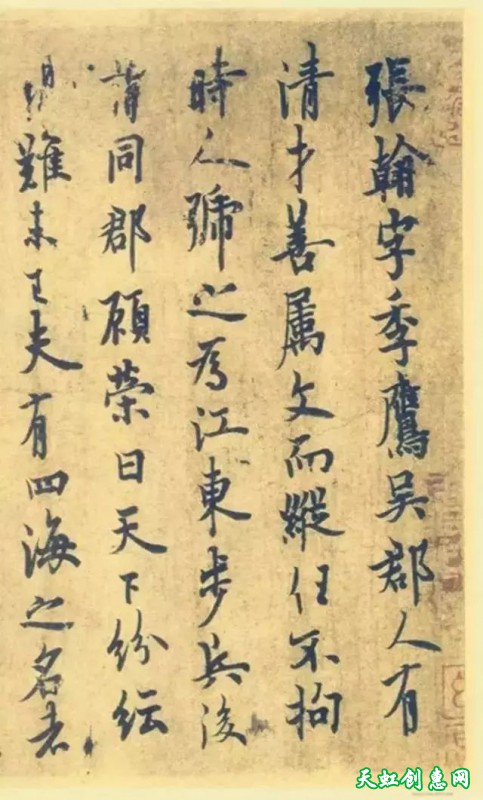 張翰字季鷹吳郡人有
清才善屬文而縱任不拘
時人號之為江東步兵後
謂同郡顧榮曰天下紛紜
難未已夫有四海之名者
天虹创惠网